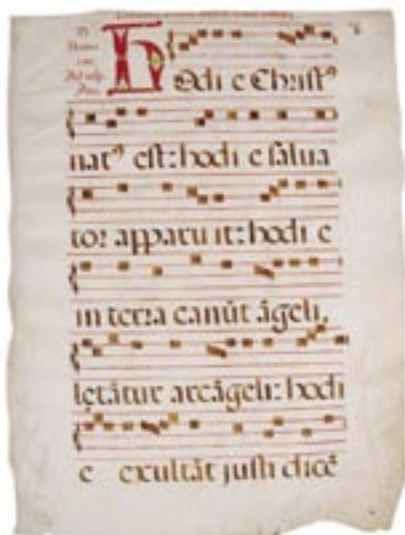 Hodi e Christꝰ
natꝰ est: hodi e salua
tor apparu it: hodi e
in terra canūt āgeli,
letātur arcāgeli: hodi
e exultāt justi dicē